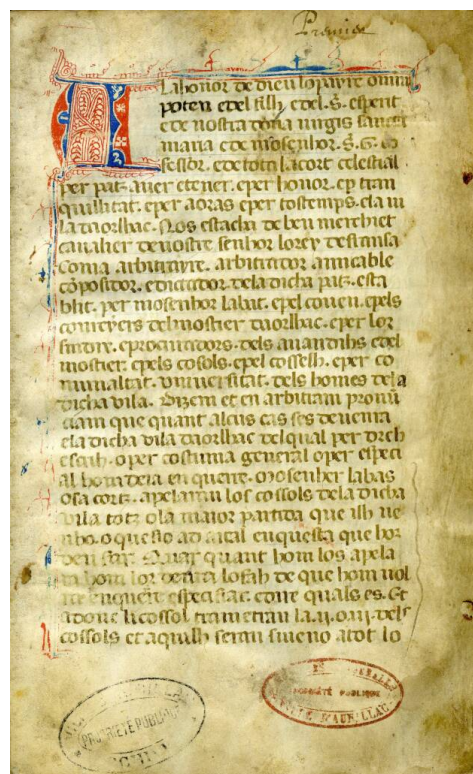 Premier
A lahonor de dieu lo payre omni
poten e del filh e del. S. esperit
e de nostra dona vergis sancta
maria e de mosenhor. S. G. co
fessor. e de tota la cort celestial
per patz aver e tener. e per honor. e p tran
quillitat. e per aoras e per tostemps. e la vi
la daorlhac. Nos estacha de beu merchiet
cavalier de nostre senhor lo rey de fransa
Coma arbitrayre. arbitrador amicable
copositor. e dictador. de la dicha patz. esta
blit. per mosenhor labat. e pel coven. e pels
convers del mostier daorlhac. e per lor
sindre. e procuradors. dels avandihs e del
mostier. e pels cosols. e pel cosselh. e per co
munaltat. universitat. dels homes de la
dicha vila. Dizem et en arbitram pronu
ciam que quant alcus cas ses devenra
e la dicha vila daorlhac del qual per drech
escrih. o per costuma general o per especi
al hom deia enquerre. mosenher labas
o sa cortz. apelaran los cossols de la dicha
vila totz o la maior partida que ilh ve
nho. o questo ad aital enquesta que hom
deu far. Quar quant hom los apela
ra hom lor deura lo fah de que hom vol
re enquerre especifiar. e dire quals es. Et
adonc li cossol trametran la. ii. o. iii. dels
cossols et aquilh seran sineno a tot lo
PROPRIÉTÉ PUBLIQUE
PROPRIÉTÉ PUBLIQUE
VILLE D'AURILLAC